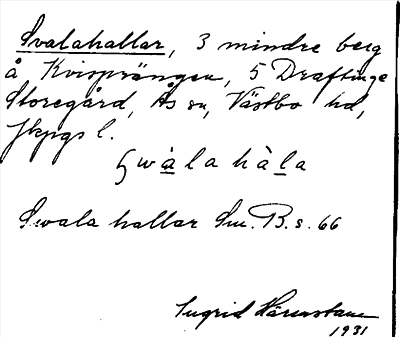 Svalahallar, 3 mindre berg
å Kvisprängen, 5 Draftinge
Storegård, Ås sn, Västbo hd,
Jkpgs l.
swàlahàla
Swala hallar Sm. B. s. 66
Ingrid
1931